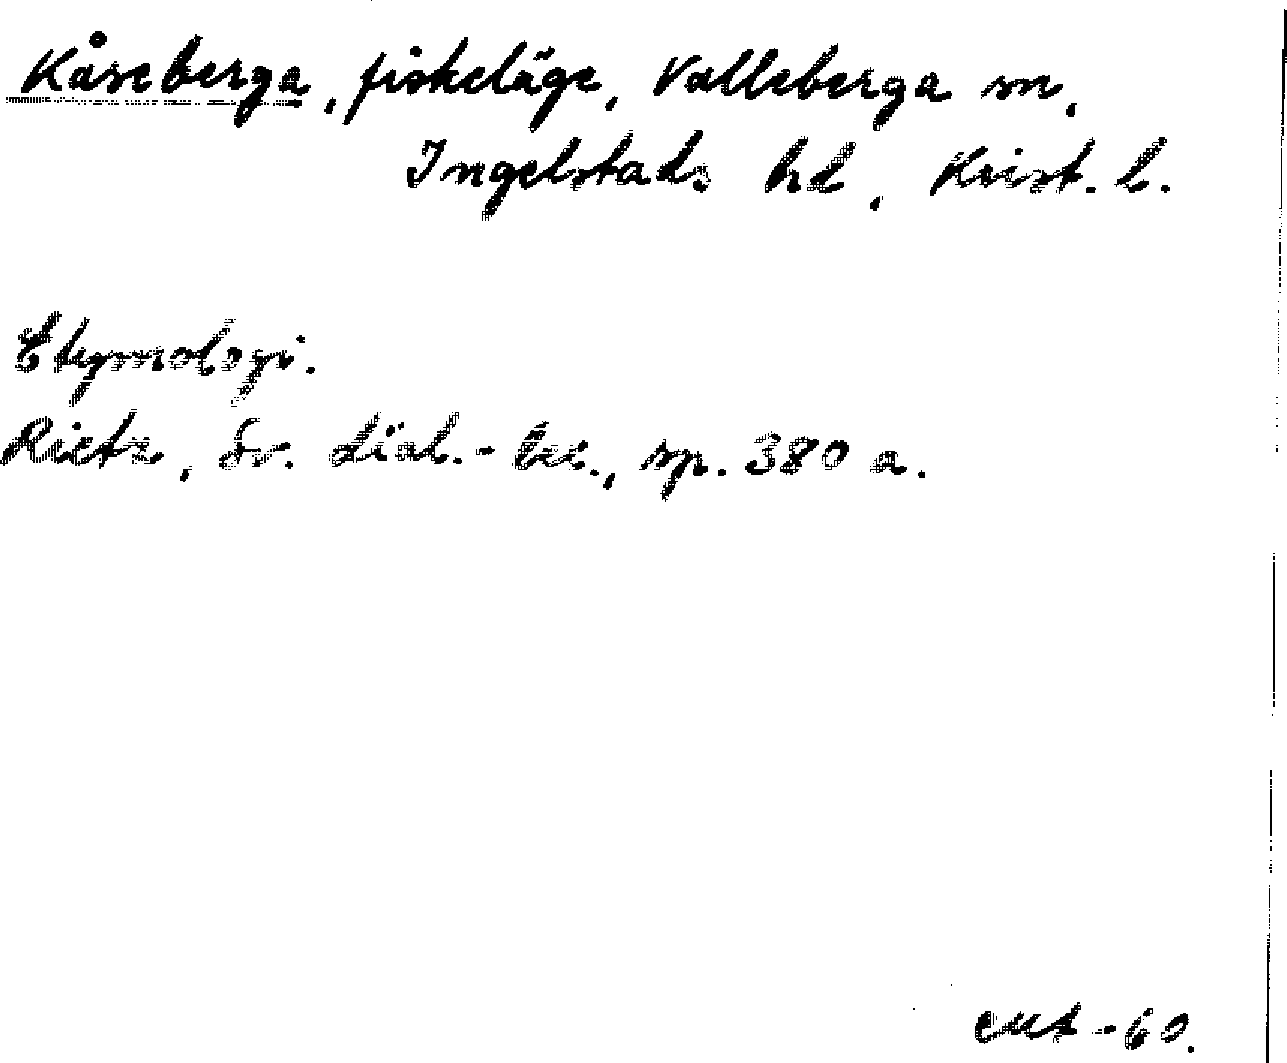 Kåseberga, fiskeläge, Valleberga sn,
Ingelstads hd, Krist. l.
Etymologi.
Rietz, Sv. dial.-lex., sp. 380 a.
-60.